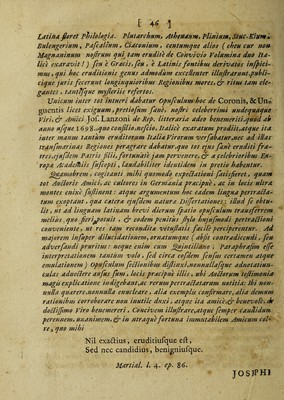 [ 46 ]
Latina floret Philologia. Plutarchum, Athenæum, Plinium, Stuc-Kium,
Bulengerium, Pascalium, Ciaconium, centumque alios (cheu cur non
Magnaninum nostrum qui tam erudite de Convivio Polonina duo Ita-
licè exaravit!) seu è Græcis, seu, è Latinis fontibus derivatis inspici-
mus, qui hoc eruditionis genus admodum excellenter illustrarunt, publi-
cique juris fecerunt longinquioribus Regionibus mores, & ritus tam ele-
gantes, tantisque mysteriis refertos.
Unicum inter tot interni dabatur Opusculum hoc de Coronis, & Un-
guentis sive exiguum, pretiosum sanè, nostri celeberrimi undequaque
Viri, & Amici Jos. Lanzoni de Rep. litteraria adeo benemeriti, quod ab
anno usque 1698. quo consilio nescio, Italicè exaratum prodiit, atque ita
inter manus tantum eruditorum Italiæ Virorum versabatur, nec ad illas
transmarinas Regiones peragrare dabatur, quo tot ejus sanè eruditi fra-
tres, ejusdem Patris filii, fortunatè jam pervenere, & a celebrioribus Eu-
ropæ Academiis suscepti, laudabiliter ideoidem in pretio habentur.
Quamobrem, cogitanti mihi quomodo expectationi satisfieret, quam
tot Auctoris Amici, ac cultores in Germania præcipuè, ac in locis ultra
montes enixè sustinent atque argumentum hoc eadem lingua pertracta-
tum exoptant, qua cætera ejusdem naturæ Dissertationes; illud se obtu-
lit, ut ad linguam latinam brevi dierum spatio opusculum transferrem
melius, quo fieri potuit, & eodem penitus stylo hujusmodi pertractioni
conveniente, ut res tam recondita vetustatis facilè perciperentur. Ad
majorem insuper dilucidationem, ornatumque (absit contradicendi, seu
adversandi pruritus: neque enim cum Quintiliano: Paraphrasim esse
interpretationem tantum volo, sed circa eosdem sensus certamen atque
emulationem) Opusculum sectionibus distinxi, nonnullasque adnotatiun-
culas adnectere ausus sum, locis præcipuè illis, ubi Auctorum testimonia
magis explicatione indigebant, ac rerum pertractatarum notitiis: Hinc non-
nulla quærere, nonnulla enucleare, alia exemplis confirmare, alia demum
rationibus corroborare non inutile duxi, atque ita amicè, & benevolè, de
doctissimo Viro benemereri. Concivem illustrare, atque semper candidum
perennem, unanimem, & in utraque fortuna immutabilem Amicum cole-
re, quo mihi
Nil exactius, eruditiusque est,
Sed nec candidius, benigniusque.
Martial. l. 4. ep. 86.
JOSEPHI